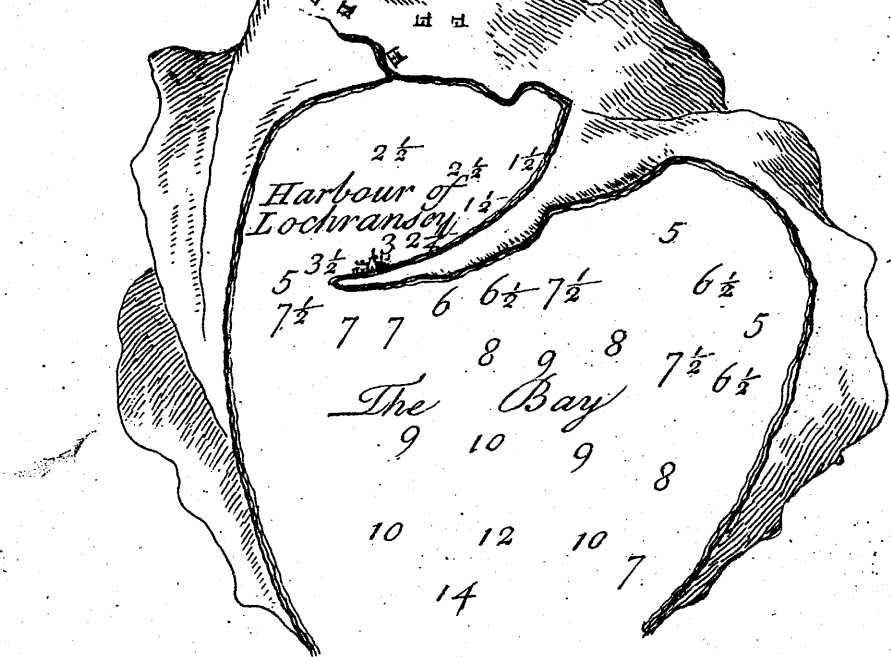 2 1/2
2 1/2
1 1/2
Harbour of
1 1/2
Lochransey
3 2 1/2
3 1/2
5
7 1/2
7 7
6
6 1/2
7 1/2
5
6 1/2
5
8
9
8
7 1/2
6 1/2
The Bay
9
10
9
8
10
12
10
7
14